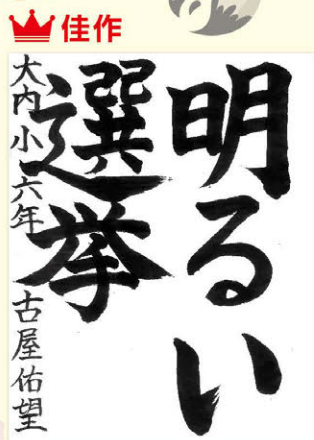 佳作
明るい
選挙
大内小六年 古屋佑望